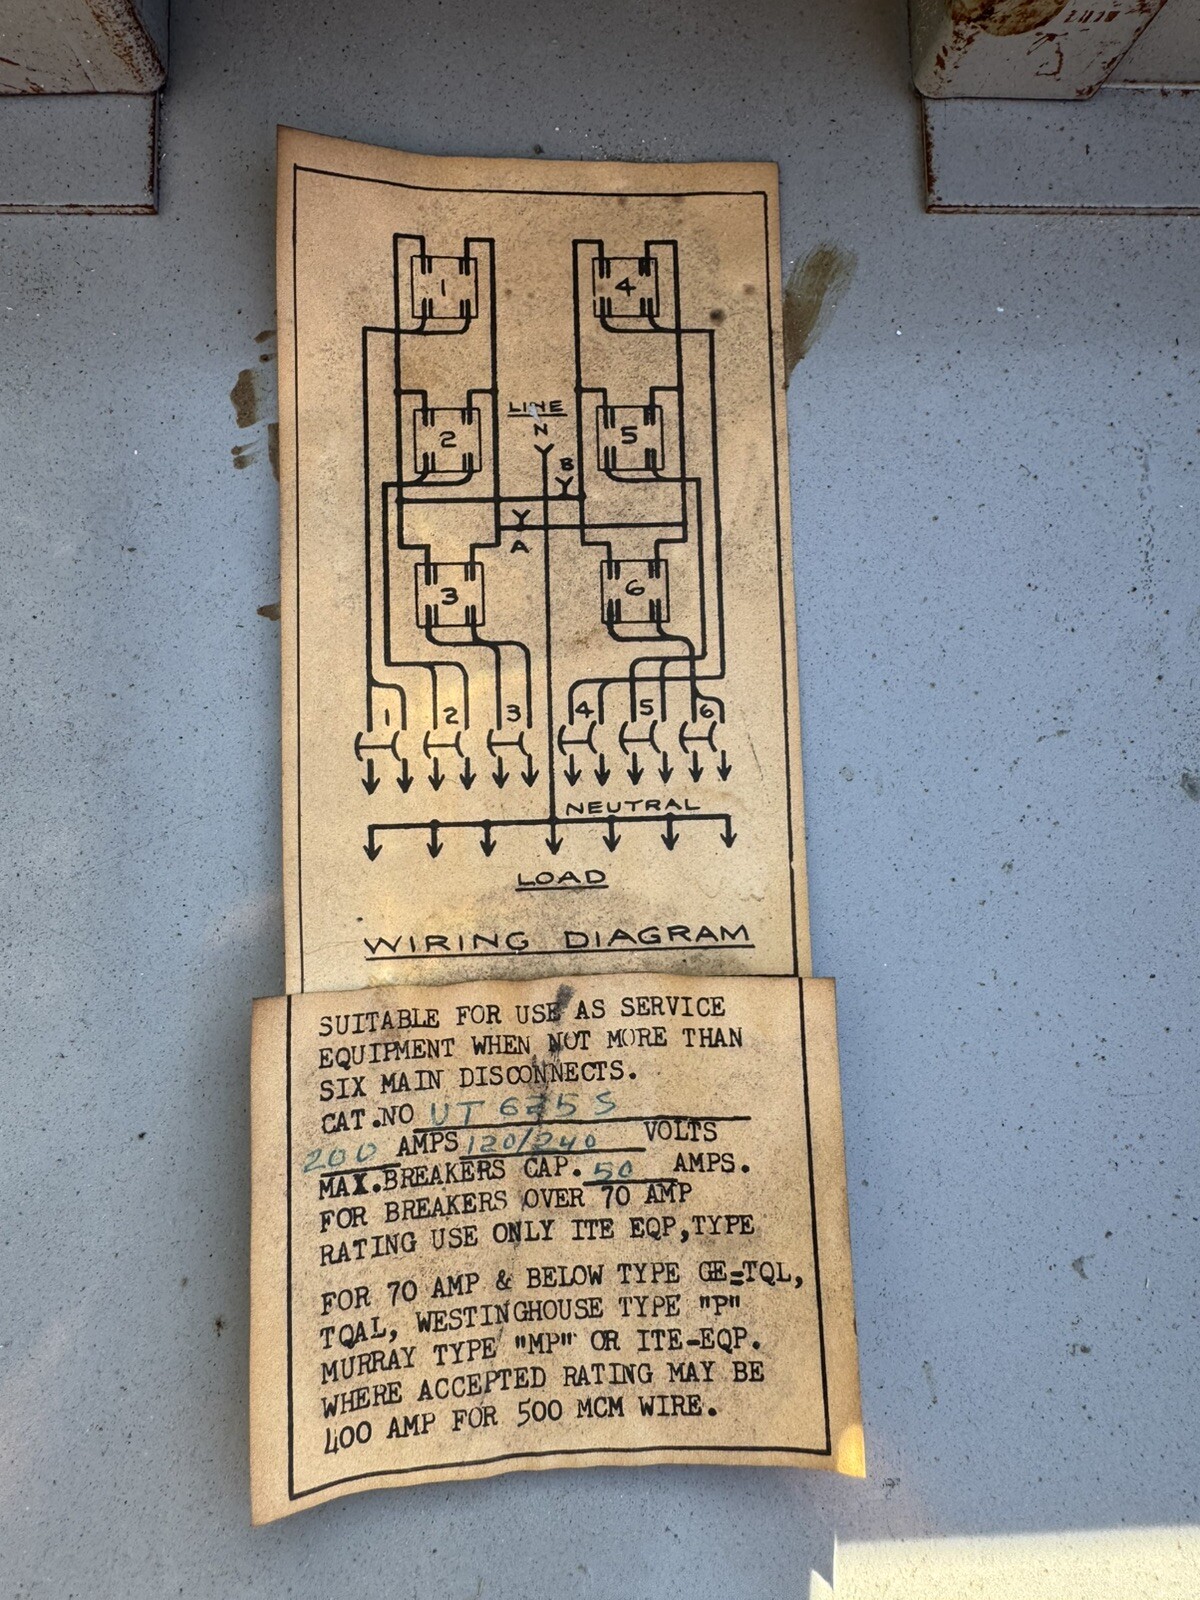 1
4
LINE
N
2
5
B
A
3
6
1 2 3 4 5 6
NEUTRAL
LOAD
WIRING DIAGRAM
SUITABLE FOR USE AS SERVICE
EQUIPMENT WHEN NOT MORE THAN
SIX MAIN DISCONNECTS.
CAT.NO
200 AMPS 120/240 VOLTS
MAX.BREAKERS CAP. 50 AMPS.
FOR BREAKERS OVER 70 AMP
RATING USE ONLY ITE EQP,TYPE
FOR 70 AMP & BELOW TYPE GE=TQL,
TQAL, WESTINGHOUSE TYPE "P"
MURRAY TYPE "MP" OR ITE-EQP.
WHERE ACCEPTED RATING MAY BE
400 AMP FOR 500 MCM WIRE.